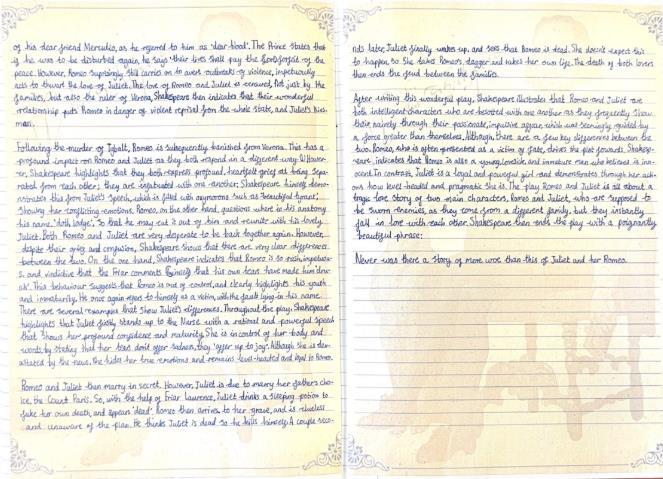 of his dear friend Mercutio, as he referred to him as 'dear-blood'. The Prince states that
if he was to be disturbed again, he says 'their lives shall pay the forfeit of the
peace. However, Romeo suprisingly still carries on to avert outbreaks of violence, impetuously
acts to thwart the love of Juliet. The love of Romeo and Juliet is censured, not just by the
families, but also the ruler of Verona, Shakespeare then indicates that their wonderful
relationship puts Romeo in danger of violent reprisal from the whole state, and Juliet's kins-
man.
Following the murder of Tybalt, Romeo is subsequently banished from Verona. This has a
profound impact on Romeo and Juliet as they both respond in a different way. However-
er, Shakespeare highlights that they both express profound, heartfelt grief at being sepa-
rated from each other; they are infatuated with one-another. Shakespeare himself demon-
strates this from Juliet's speech, which is filled with oxymorons such as 'beautiful tyrant',
showing her conflicting emotions. Romeo, on the other hand, questions where in his anatomy
his name 'doth lodge', so that he may cut it out of him and reunite with his lovely
Juliet. Both Romeo and Juliet are very desperate to be back together again. However,
despite their grief and confusion, Shakespeare shows that there are very clear differences
between the two. On the one hand, Shakespeare indicates that Romeo is so rash, impetuou-
s, and vindictive that the Friar comments himself that his own tears have made him 'dru-
nk'. This behaviour suggests that Romeo is out of control, and clearly highlights his youth
and immaturity. He once again refers to himself as a victim, with the fault lying in his name.
There are several examples that show Juliet's differences. Throughout the play, Shakespeare
highlights that Juliet firstly stands up to the Nurse with a rational and powerful speech
that shows her profound confidence and maturity. She is in control of her body and
words, by stating that her tears don't offer sadness, they 'offer up to joy'. Although she is dev-
astated by the news, she hides her true emotions and remains level-headed and loyal to Romeo.
Romeo and Juliet then marry in secret. However, Juliet is due to marry her father's cho-
ice, the Count Paris. So, with the help of Friar Lawrence, Juliet drinks a sleeping potion to
fake her own death, and appears 'dead'. Romeo then arrives, to her grave, and is clueless
and unaware of the plan. He thinks Juliet is dead so he kills himself. A couple seco-
nds later, Juliet finally wakes up, and sees that Romeo is dead. She doesn't expect this
to happen, so she takes Romeo's dagger and takes her own life. The death of both lovers
then ends the feud between the families.
After writing this wonderful play, Shakespeare illustrates that Romeo and Juliet are
both intelligent characters who are besotted with one another as they frequently show
their naivety through their passionate, impulsive affair, which was seemingly guided by
a force greater than themselves. Although, there are a few key differences between the
two. Romeo, who is often presented as a victim of fate, drives the plot forwards. Shakesp-
eare, indicates that Romeo is also a young, lovesick, and immature man who believes is inn-
ocent. In contrast, Juliet is a loyal and powerful girl and demonstrates through her acti-
ons how level-headed and pragmatic she is. The play Romeo and Juliet is all about a
tragic love story of two main characters, Romeo and Juliet, who are supposed to
be sworn enemies, as they come from a different family, but they instantly
fall in love with each other. Shakespeare then ends the play with a poignantly
beautiful phrase:
Never was there a story of more woe than this of Juliet and her Romeo